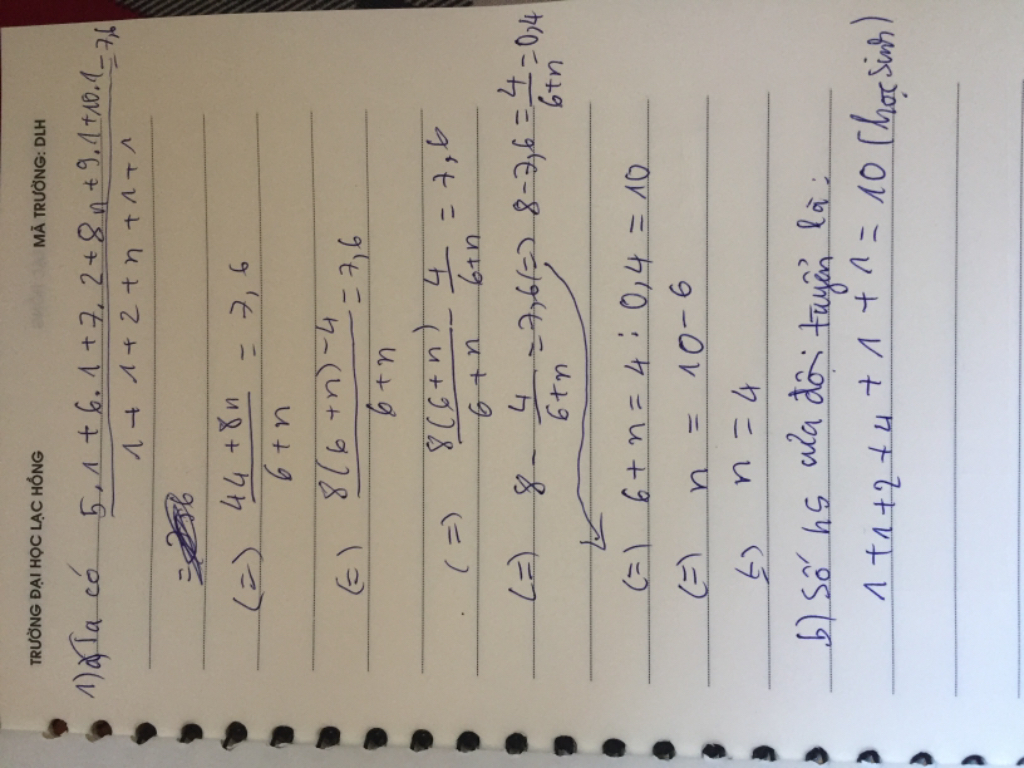 TRƯỜNG ĐẠI HỌC LẠC HỒNG MÃ TRƯỜNG: DLH
1) a) Ta có 5.1 + 6.1 + 7.2 + 8n + 9.1 + 10.1 = 7,6
1 + 1 + 2 + n + 1 + 1
(=) 44 + 8n = 7,6
6 + n
(=) 8(6 + n) - 4 = 7,6
6 + n
(=) 8(6 + n) - 4 = 7,6
6 + n 6 + n
(=) 8 - 4 = 7,6 (=) 8 - 7,6 = 4 = 0,4
6 + n 6 + n
(=) 6 + n = 4 : 0,4 = 10
(=) n = 10 - 6
(=) n = 4
b) Số hs của đội tuyển là:
1 + 1 + 2 + 4 + 1 + 1 = 10 (học sinh)